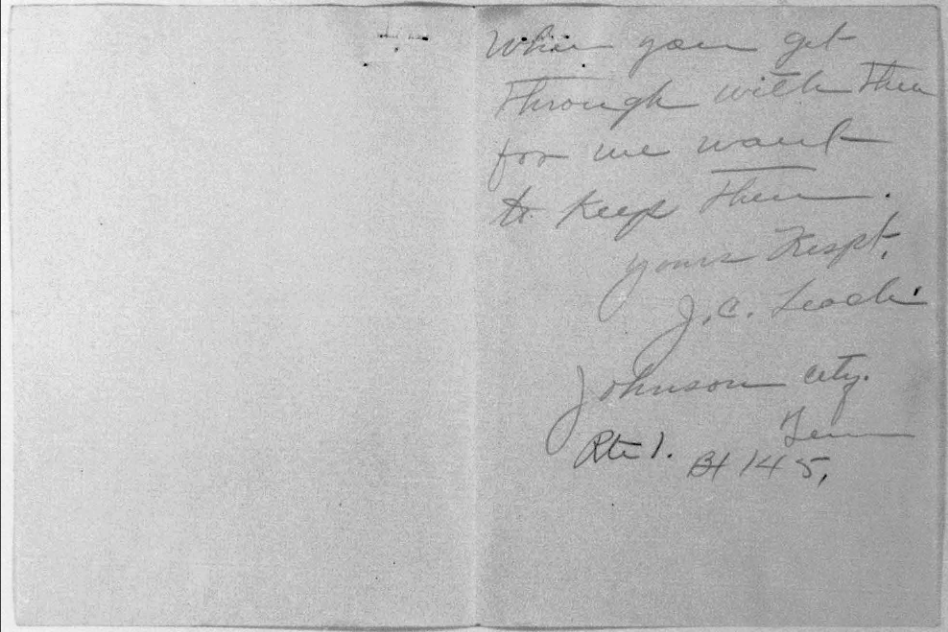 When you get
Through with Them
for we want
to keep Them.
yours Respt,
J.C. Leach
Johnson city.
Tenn
Rte 1. BX 145,